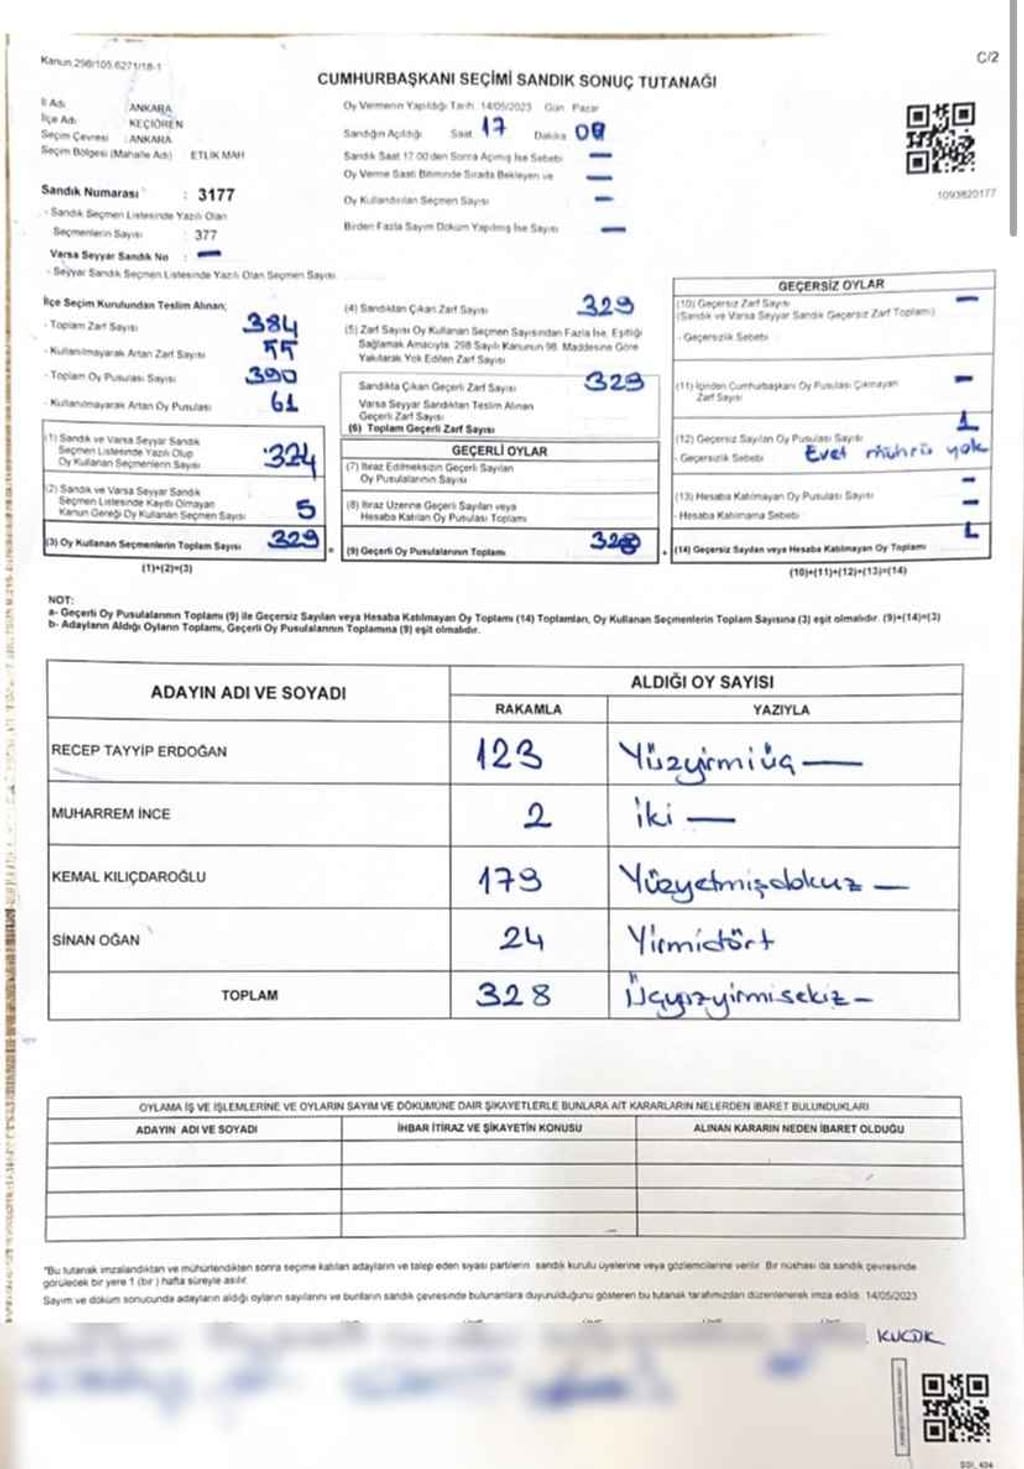 Kanun 298/105.6271/18-1
C/2
CUMHURBAŞKANI SEÇİMİ SANDIK SONUÇ TUTANAĞI
İl Adı ANKARA
İlçe Adı KEÇİÖREN
Seçim Çevresi : ANKARA
Seçim Bölgesi (Mahalle Adı) ETLİK MAH
Sandık Numarası : 3177
- Sandık Seçmen Listesinde Yazılı Olan
Seçmenlerin Sayısı : 377
Varsa Seyyar Sandık No : —
- Seyyar Sandık Seçmen Listesinde Yazılı Olan Seçmen Sayısı
Oy Vermenin Yapıldığı Tarih 14/05/2023 Gün Pazar
Sandığın Açıldığı Saat 17 Dakika 00
Sandık Saat 17.00'den Sonra Açılmış İse Sebebi —
Oy Verme Saati Bitiminde Sırada Bekleyen ve —
Oy Kullandırılan Seçmen Sayısı —
Birden Fazla Sayım Döküm Yapılmış İse Sayısı —
1093820177
İlçe Seçim Kurulundan Teslim Alınan;
- Toplam Zarf Sayısı 384
- Kullanılmayarak Artan Zarf Sayısı 55
- Toplam Oy Pusulası Sayısı 390
- Kullanılmayarak Artan Oy Pusulası 61
(1) Sandık ve Varsa Seyyar Sandık
Seçmen Listesinde Yazılı Olup
Oy Kullanan Seçmenlerin Sayısı 324
(2) Sandık ve Varsa Seyyar Sandık
Seçmen Listesinde Kayıtlı Olmayan
Kanun Gereği Oy Kullanan Seçmen Sayısı 5
(3) Oy Kullanan Seçmenlerin Toplam Sayısı 329
(1)+(2)=(3)
(4) Sandıktan Çıkan Zarf Sayısı 329
(5) Zarf Sayısı Oy Kullanan Seçmen Sayısından Fazla İse, Eşitliği
Sağlamak Amacıyla, 298 Sayılı Kanunun 98. Maddesine Göre
Yakılarak Yok Edilen Zarf Sayısı
Sandıkta Çıkan Geçerli Zarf Sayısı 329
Varsa Seyyar Sandıktan Teslim Alınan
Geçerli Zarf Sayısı
(6) Toplam Geçerli Zarf Sayısı
GEÇERLİ OYLAR
(7) İtiraz Edilmeksizin Geçerli Sayılan
Oy Pusulalarının Sayısı
(8) İtiraz Üzerine Geçerli Sayılan veya
Hesaba Katılan Oy Pusulası Toplamı
(9) Geçerli Oy Pusulalarının Toplamı 328
GEÇERSİZ OYLAR
(10) Geçersiz Zarf Sayısı —
(Sandık ve Varsa Seyyar Sandık Geçersiz Zarf Toplamı)
- Geçersizlik Sebebi
(11) İçinden Cumhurbaşkanı Oy Pusulası Çıkmayan —
Zarf Sayısı
(12) Geçersiz Sayılan Oy Pusulası Sayısı 1
- Geçersizlik Sebebi Evet mührü yok
(13) Hesaba Katılmayan Oy Pusulası Sayısı —
- Hesaba Katılmama Sebebi —
(14) Geçersiz Sayılan veya Hesaba Katılmayan Oy Toplamı 1
(10)+(11)+(12)+(13)=(14)
NOT:
a- Geçerli Oy Pusulalarının Toplamı (9) ile Geçersiz Sayılan veya Hesaba Katılmayan Oy Toplamı (14) Toplamları, Oy Kullanan Seçmenlerin Toplam Sayısına (3) eşit olmalıdır. (9)+(14)=(3)
b- Adayların Aldığı Oyların Toplamı, Geçerli Oy Pusulalarının Toplamına (9) eşit olmalıdır.
ADAYIN ADI VE SOYADI ALDIĞI OY SAYISI
RAKAMLA YAZIYLA
RECEP TAYYİP ERDOĞAN 123 Yüzyirmiüç —
MUHARREM İNCE 2 iki —
KEMAL KILIÇDAROĞLU 179 Yüzyetmişdokuz —
SİNAN OĞAN 24 Yirmidört
TOPLAM 328 Üçyüzyirmisekiz —
OYLAMA İŞ VE İŞLEMLERİNE VE OYLARIN SAYIM VE DÖKÜMÜNE DAİR ŞİKAYETLERLE BUNLARA AİT KARARLARIN NELERDEN İBARET BULUNDUKLARI
ADAYIN ADI VE SOYADI İHBAR İTİRAZ VE ŞİKAYETİN KONUSU ALINAN KARARIN NEDEN İBARET OLDUĞU
*Bu tutanak imzalandıktan ve mühürlendikten sonra seçime katılan adayların ve talep eden siyasi partilerin sandık kurulu üyelerine veya gözlemcilerine verilir. Bir nüshası da sandık çevresinde
görülecek bir yere 1 (bir) hafta süreyle asılır.
Sayım ve döküm sonucunda adayların aldığı oyların sayılarını ve bunların sandık çevresinde bulunanlara duyurulduğunu gösteren bu tutanak tarafımızdan düzenlenerek imza edildi. 14/05/2023
KUCUK